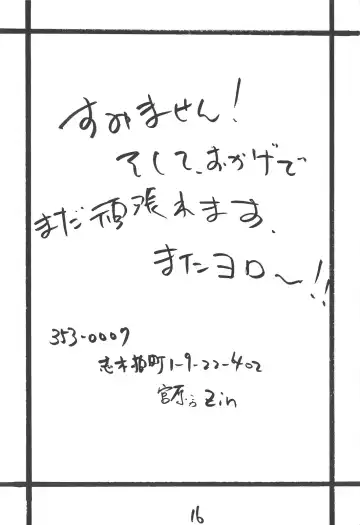 すみません!
そして、おかげで
まだ頑張れます.
またヨロ～!!
353-0007
志木柏町1-9-22-402
宮原方 Zin
16